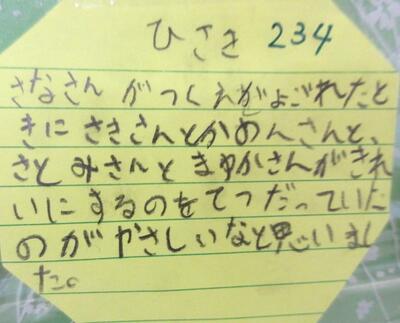 ひさき 234
さなさん がつくえがよごれたと
きに さきさんとかのんさんと、
さとみさんと まゆかさんがきれ
いにするのをてつだっていた
のが やさしいなと思いまし
た。